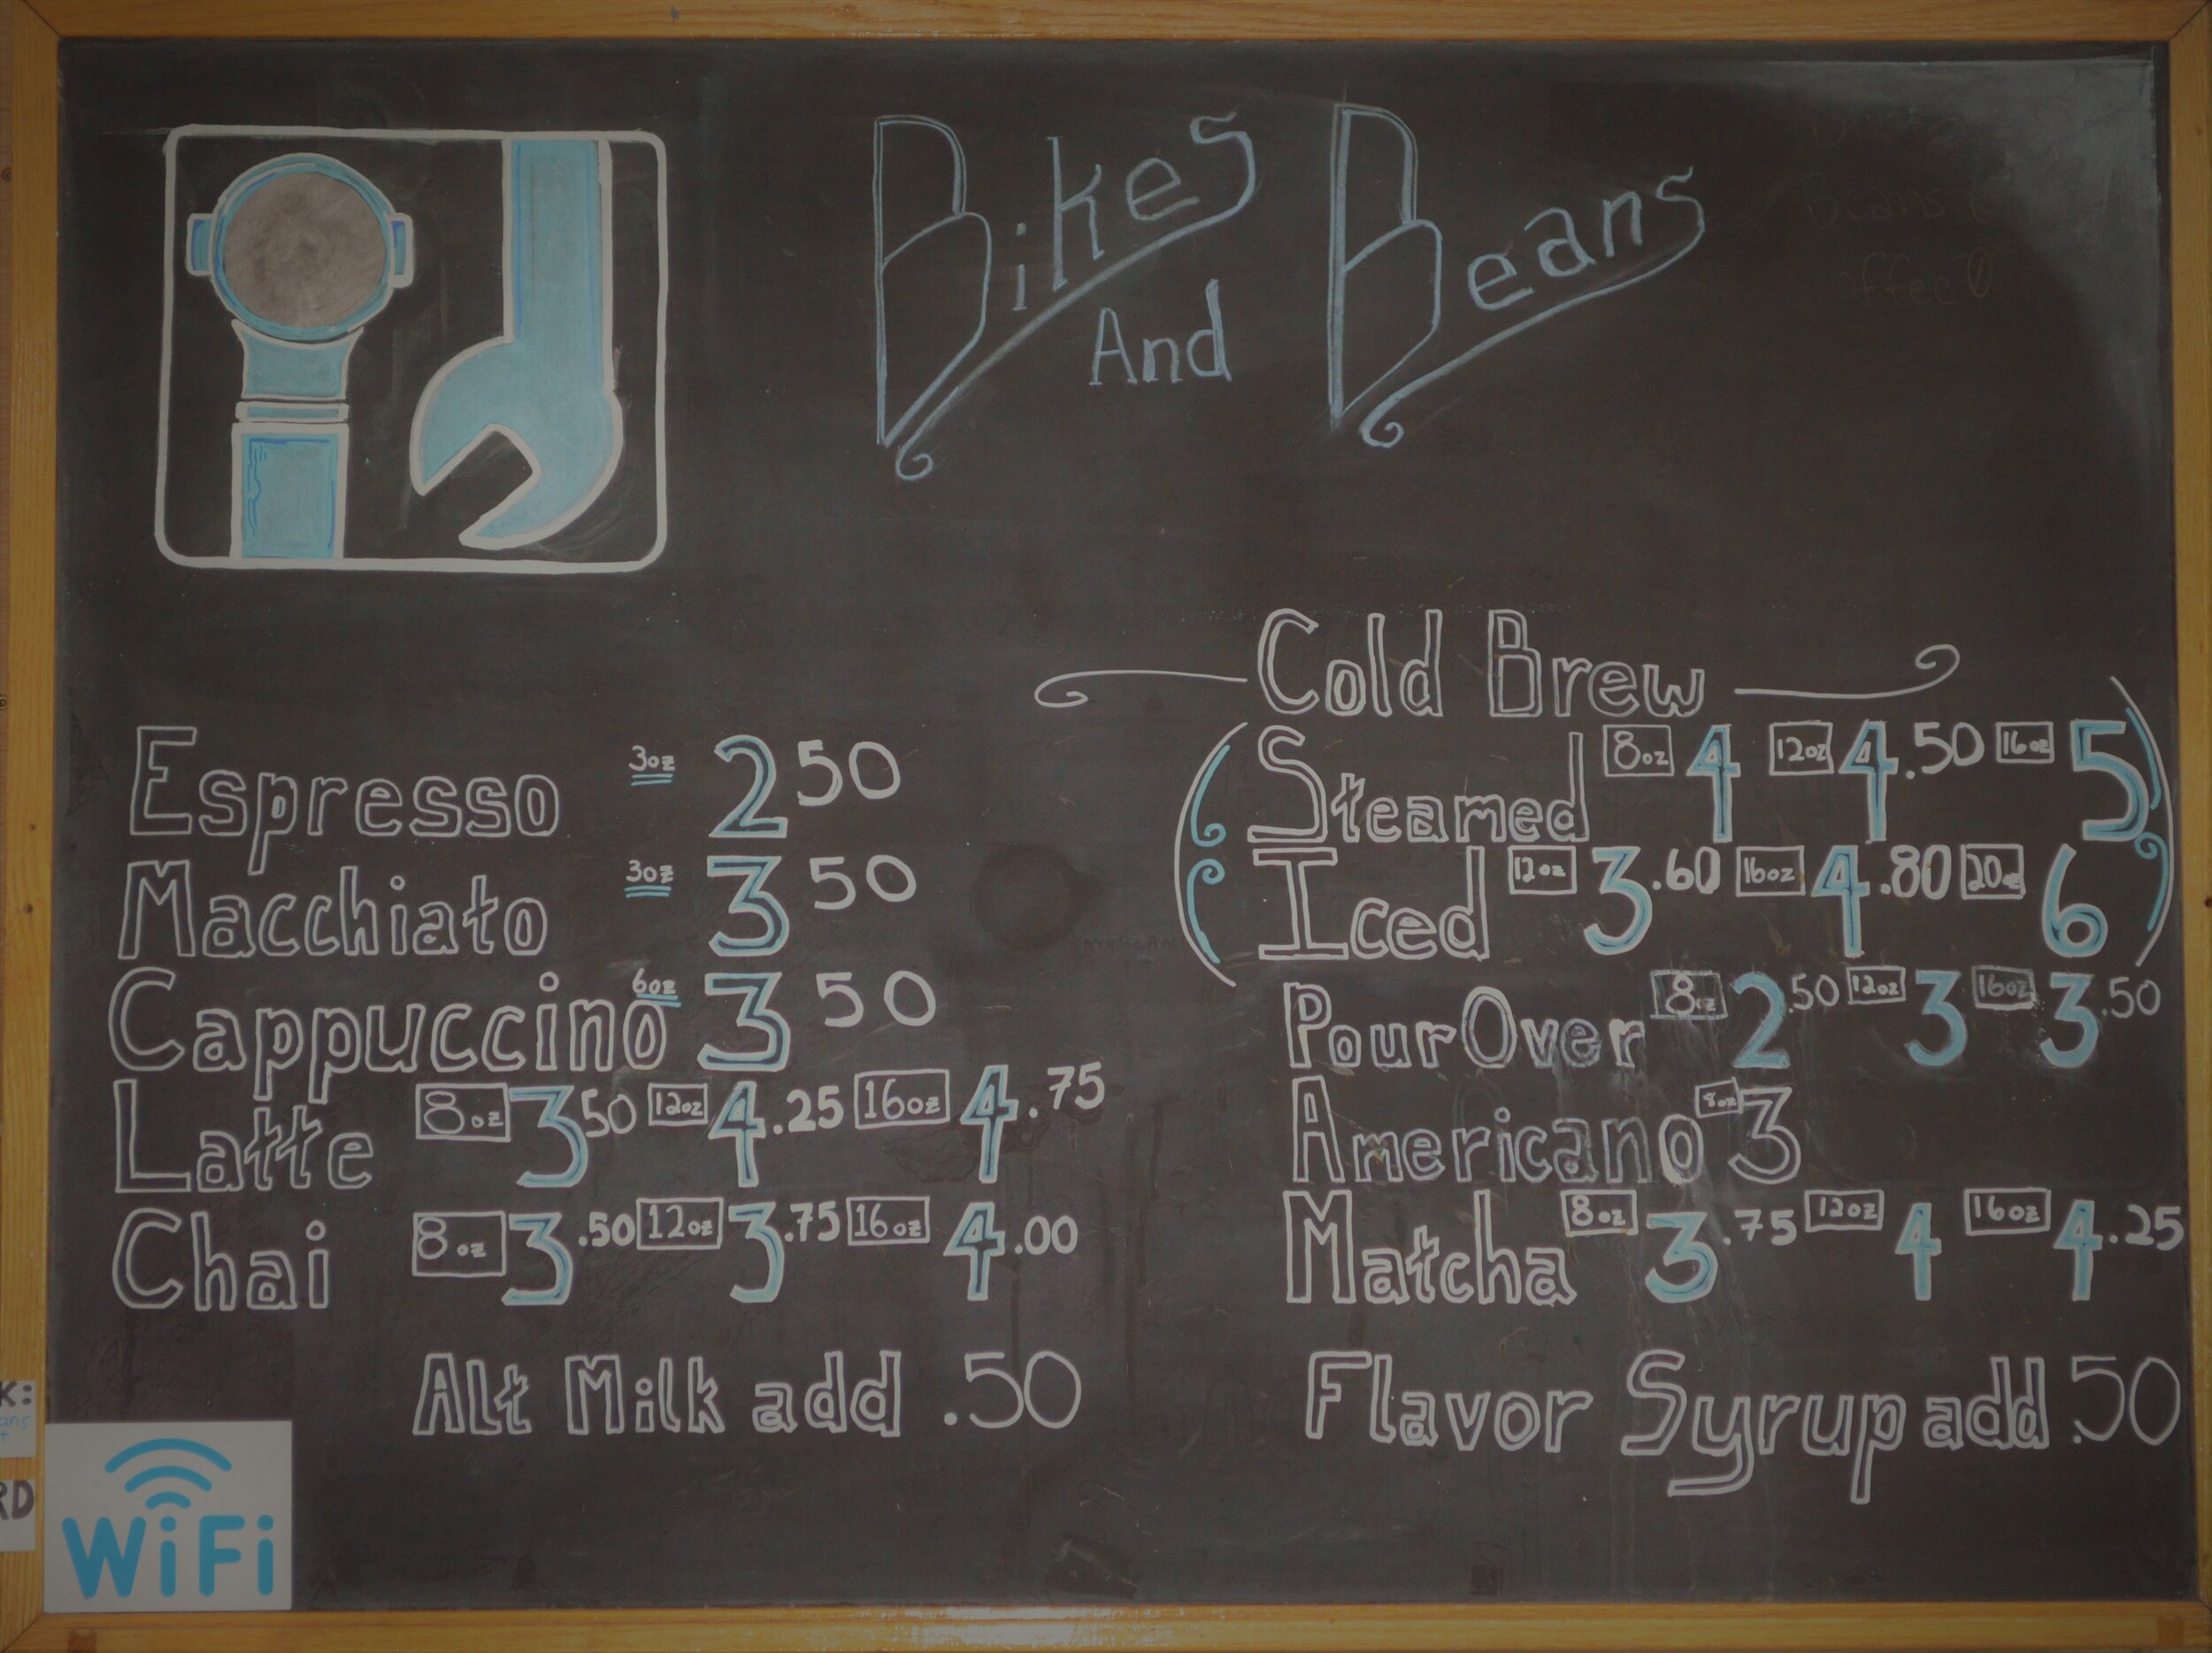 Bikes
And
Beans
Espresso 3oz 2 50
Macchiato 3oz 3 50
Cappuccino 6oz 3 50
Latte 8oz 3 50 12oz 4.25 16oz 4.75
Chai 8oz 3.50 12oz 3.75 16oz 4.00
Alt Milk add .50
Cold Brew
Steamed 8oz 4 12oz 4.50 16oz 5
Iced 12oz 3.60 16oz 4.80 20oz 6
Pour Over 8oz 2.50 12oz 3 16oz 3.50
Americano 8oz 3
Matcha 8oz 3.75 12oz 4 16oz 4.25
Flavor Syrup add .50
WiFi